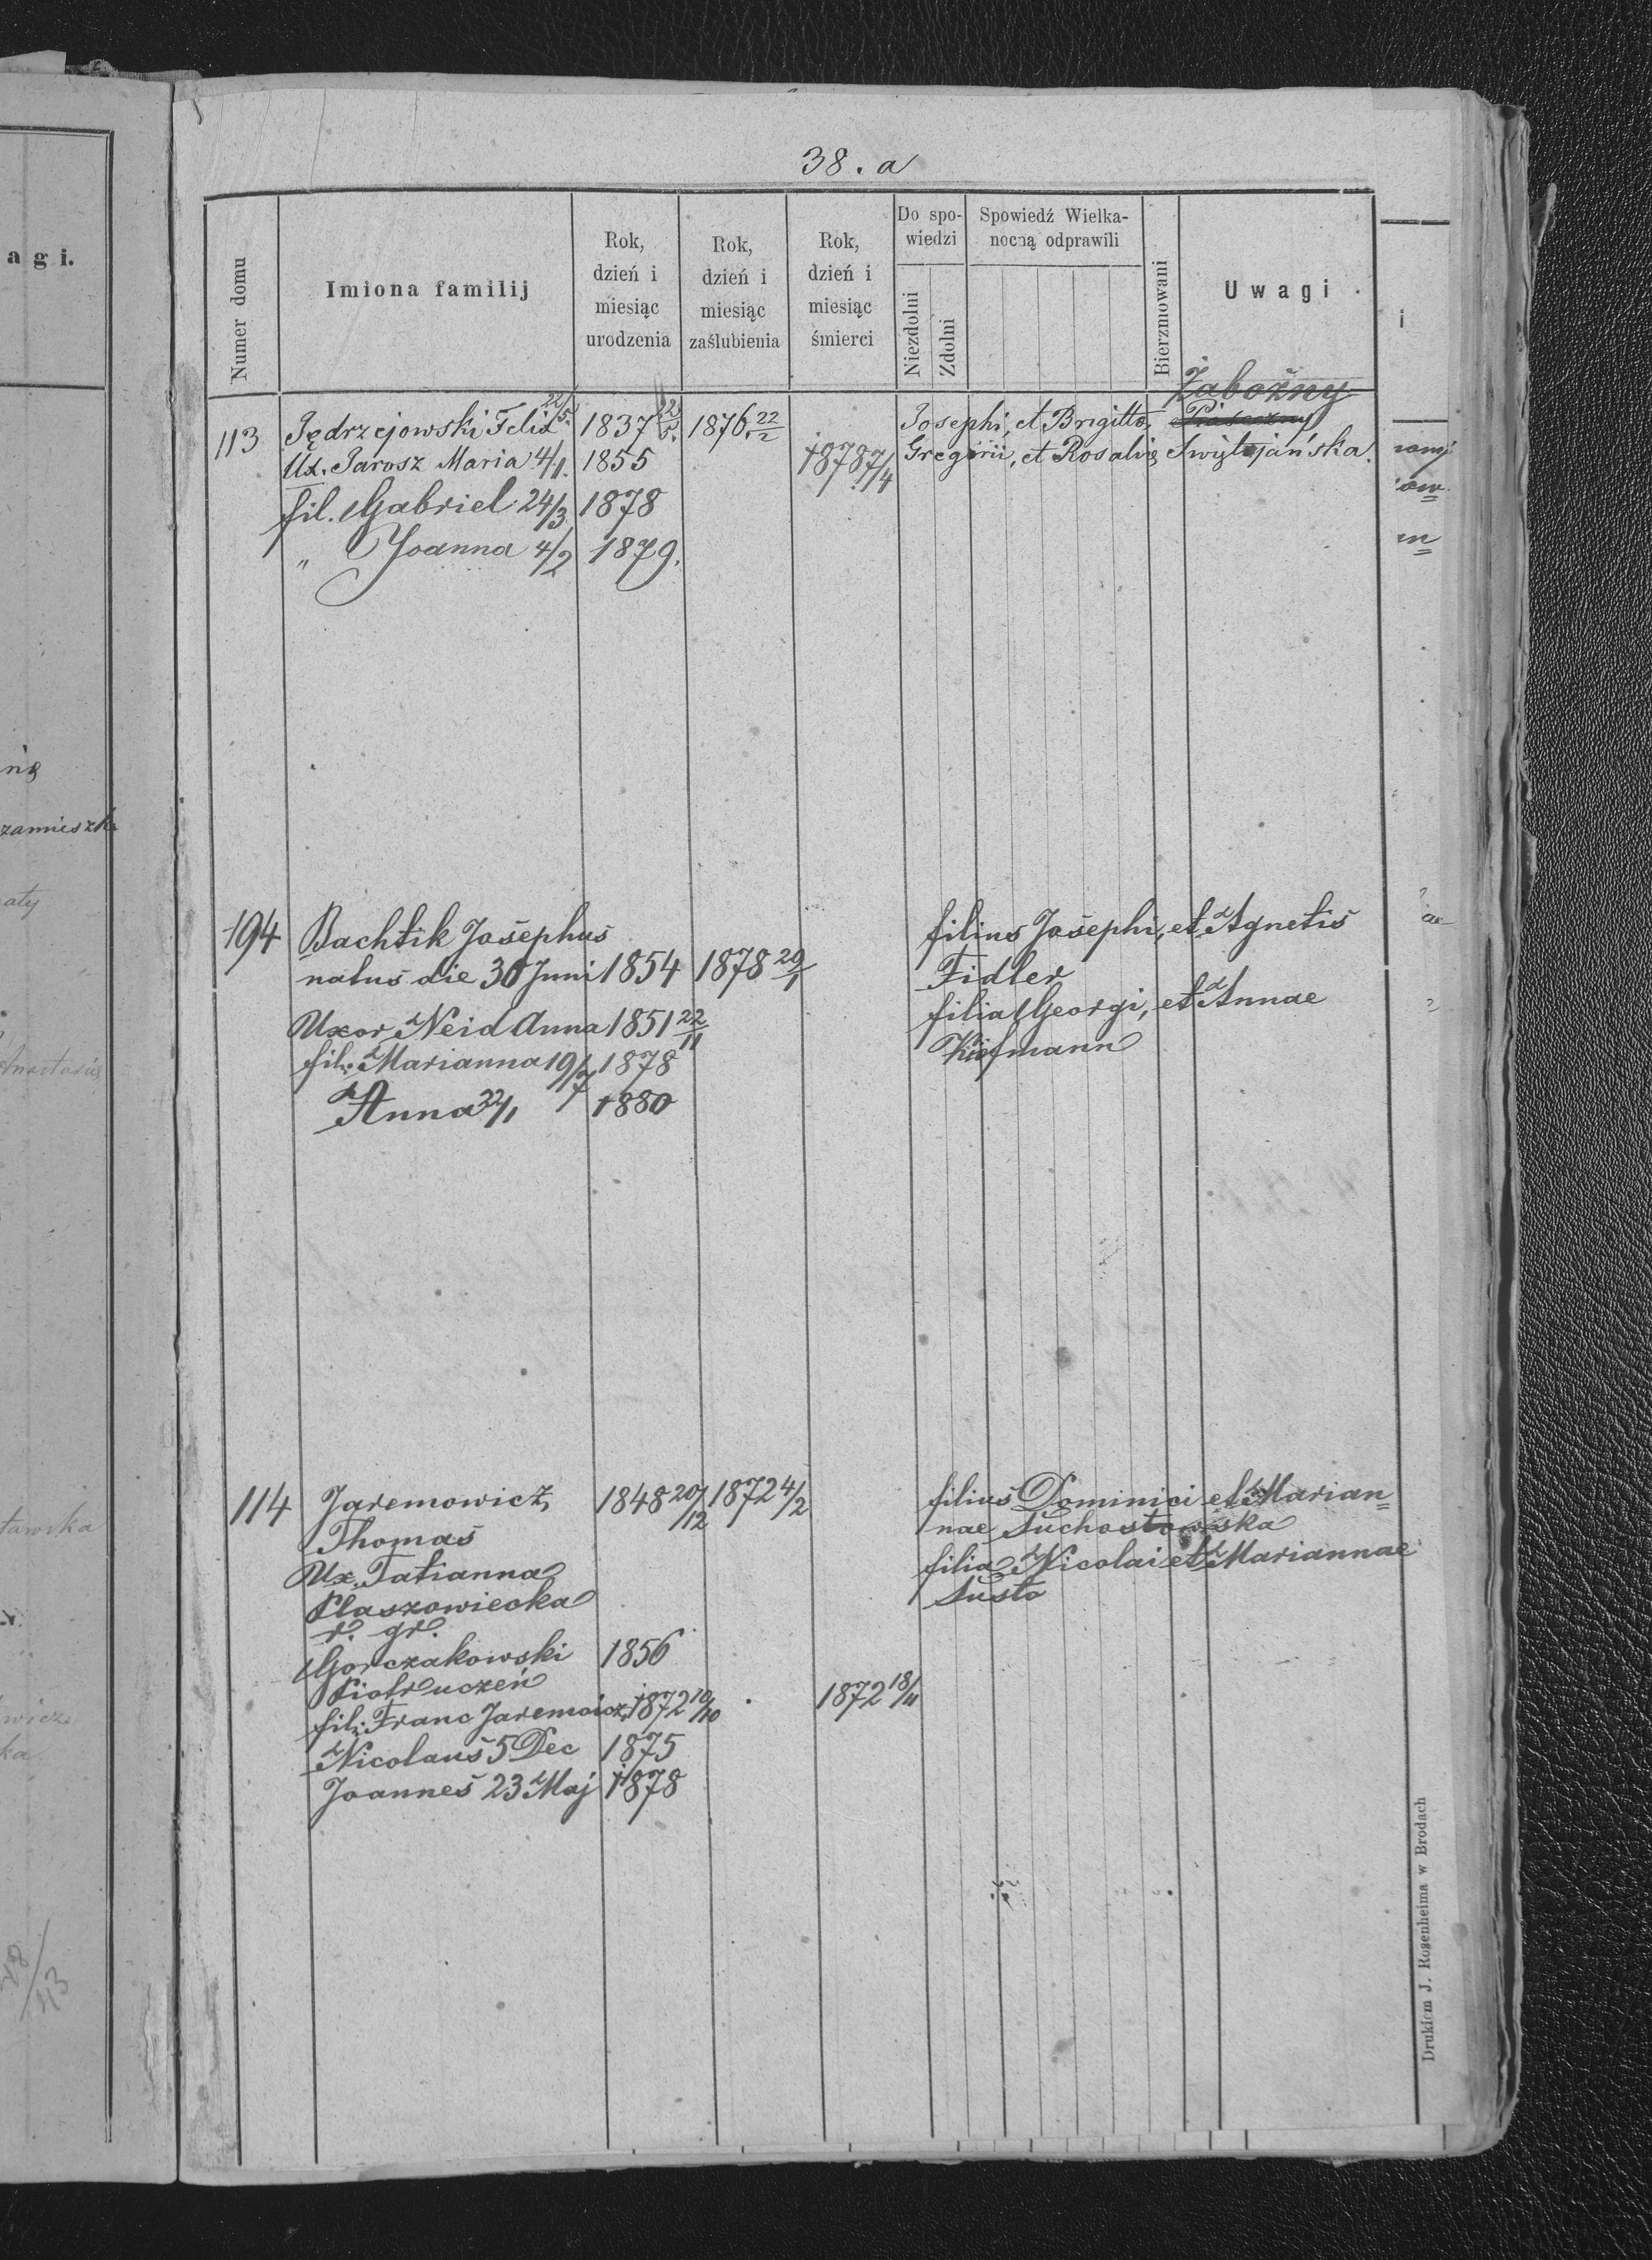 38. a
Numer domu
Imiona familij
Rok, dzień i miesiąc urodzenia
Rok, dzień i miesiąc zaślubienia
Rok, dzień i miesiąc śmierci
Do spo-
wiedzi
Niezdolni
Zdolni
Spowiedź Wielka-
nocną odprawili
Bierzmowani
Uwagi
Zabożny
113 Jędrzejowski Felix 22/5. 1837 22/5. 1876 22/2 Josephi, et Brigitta
Ux. Jarosz Maria 4/1. 1855 †1878 7/4 Gregorii, et Rosalię Swiętojańska.
fil. Gabriel 24/3 1878
„ Joanna 4/2 1879.
194 Bachtik Josephus filius Josephi, et Agnetis
natus die 30 Juni 1854 1878 29/1 Fidler
Uxor Neid Anna 1851 22/11 filia Georgi, et Annae
fil: Marianna 19/7 1878
Anna 22/1 1880
114 Jaremowicz, 1848 20/12 1872 4/2 filius Dominici et Marian=
Thomas nae Suchostowska
Ux. Tatianna filia Nicolai et Mariannae
Plaszowiecka Susto
r. gr.
Gorczakowski 1856
Piotr uczeń
fil: Franc Jaremoicz, 1872 10/10 1872 18/11
Nicolaus 5 Dec 1875
Joannes 23 Maj †1878
Drukiem J. Rosenheima w Brodach
agi.
zamieszk